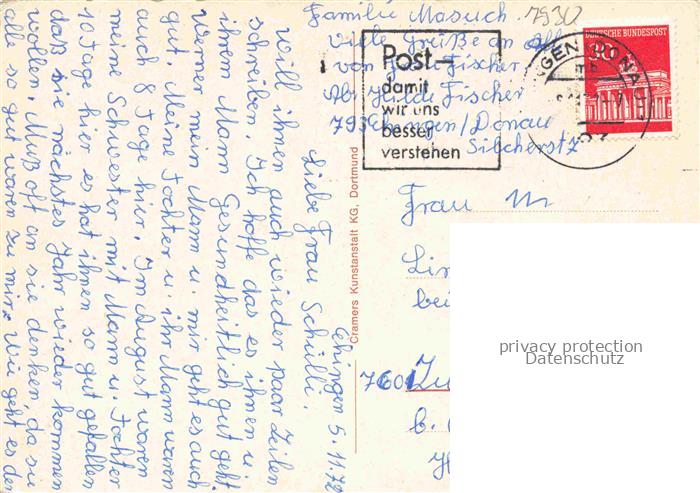 Ehingen 5.11.72
Liebe Frau Schülli.
Will ihnen auch wieder paar Zeilen
schreiben Ich hoffe das es ihnen u.
ihrem Mann Gesundheitlich gut geht.
Werner mein Mann u. mir geht es auch
gut. Meine Tochter u. ihr Mann waren
auch 8 Tage hier. Im August waren
meine Schwester mit Mann u. Tochter
10 Tage hier es hat ihnen so gut gefallen
daß sie nächstes Jahr wieder kommen
wollen. Muß oft an sie denken da sie
alle so gut waren zu mir. Wie geht es den
Familie Masuch. 7930
Viele Grüße an alle
von Fischer
Abs. Hilde Fischer
793 Ehingen/Donau
Silcherstr 7
Post-
damit
wir uns
besser
verstehen
DEUTSCHE BUNDESPOST
30
INGEN DONAU
mb
Cramers Kunstanstalt KG, Dortmund
Frau
Lin
bei
7601
b.
privacy protection
Datenschutz